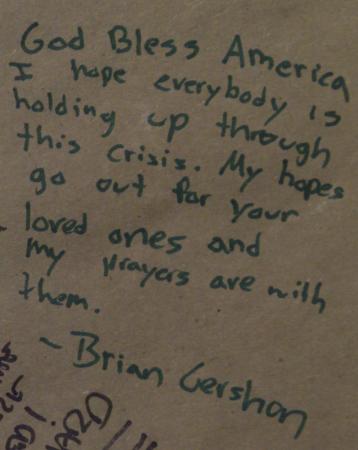 God Bless America
I hope everybody is
holding up through
this crisis. My hopes
go out for your
loved ones and
my prayers are with
them.
~ Brian Gershon